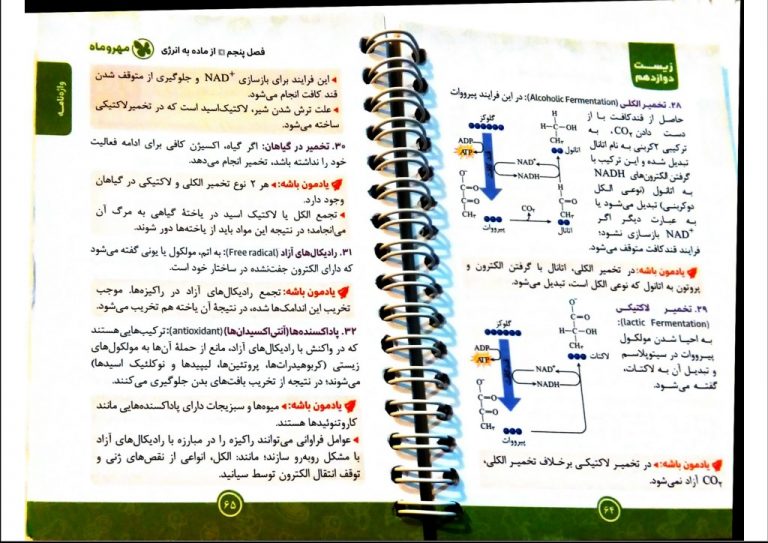 زیست
دوازدهم
۲۸. تخمیر الکلی (Alcoholic Fermentation): در این فرایند پیرووات
حاصل از قندکافت با از
دست دادن CO₂، به
ترکیبی ۲کربنی به نام اتانال
تبدیل شده و این ترکیب با
گرفتن الکترون‌های NADH
به اتانول (نوعی الکل
دوکربنی) تبدیل می‌شود یا
به عبارت دیگر اگر
NAD⁺ بازسازی نشود؛
فرایند قندکافت متوقف می‌شود.
گلوکز
ADP
ATP
قندکافت
NAD⁺
NADH
اتانول
H
H–C–OH
CH₃
O⁻
C=O
C=O
CH₃
پیرووات
CO₂
H
C=O
CH₃
اتانال
یادمون باشه: در تخمیر الکلی، اتانال با گرفتن الکترون و
پروتون به اتانول که نوعی الکل است، تبدیل می‌شود.
۲۹. تخمیر لاکتیکی
(lactic Fermentation):
به احیا شدن مولکول
پیرووات در سیتوپلاسم
و تبدیل آن به لاکتات،
گفته می‌شود.
گلوکز
ADP
ATP
قندکافت
NAD⁺
NADH
O⁻
C=O
H–C–OH
CH₃
لاکتات
O⁻
C=O
C=O
CH₃
پیرووات
یادمون باشه: در تخمیر لاکتیکی برخلاف تخمیر الکلی،
CO₂ آزاد نمی‌شود.
۶۴
فصل پنجم از ماده به انرژی
مهروماه
واژه‌نامه
این فرایند برای بازسازی NAD⁺ و جلوگیری از متوقف شدن
قند کافت انجام می‌شود.
علت ترش شدن شیر، لاکتیک‌اسید است که در تخمیرلاکتیکی
ساخته می‌شود.
۳۰. تخمیر در گیاهان: اگر گیاه، اکسیژن کافی برای ادامه فعالیت
خود را نداشته باشد، تخمیر انجام می‌دهد.
یادمون باشه: هر ۲ نوع تخمیر الکلی و لاکتیکی در گیاهان
وجود دارد.
تجمع الکل یا لاکتیک اسید در یاختهٔ گیاهی به مرگ آن
می‌انجامد؛ در نتیجه این مواد باید از یاخته‌ها دور شوند.
۳۱. رادیکال‌های آزاد (Free radical): به اتم، مولکول یا یونی گفته می‌شود
که دارای الکترون جفت‌نشده در ساختار خود است.
یادمون باشه: تجمع رادیکال‌های آزاد در راکیزه‌ها، موجب
تخریب این اندامک‌ها شده، در نتیجهٔ آن یاخته هم تخریب می‌شود.
۳۲. پاداکسنده‌ها (آنتی‌اکسیدان‌ها) (antioxidant): ترکیب‌هایی هستند
که در واکنش با رادیکال‌های آزاد، مانع از حملهٔ آن‌ها به مولکول‌های
زیستی (کربوهیدرات‌ها، پروتئین‌ها، لیپیدها و نوکلئیک اسیدها)
می‌شوند؛ در نتیجه از تخریب بافت‌های بدن جلوگیری می‌کنند.
یادمون باشه: میوه‌ها و سبزیجات دارای پاداکسنده‌هایی مانند
کاروتنوئیدها هستند.
عوامل فراوانی می‌توانند راکیزه را در مبارزه با رادیکال‌های آزاد
با مشکل روبه‌رو سازند؛ مانند: الکل، انواعی از نقص‌های ژنی و
توقف انتقال الکترون توسط سیانید.
۶۵